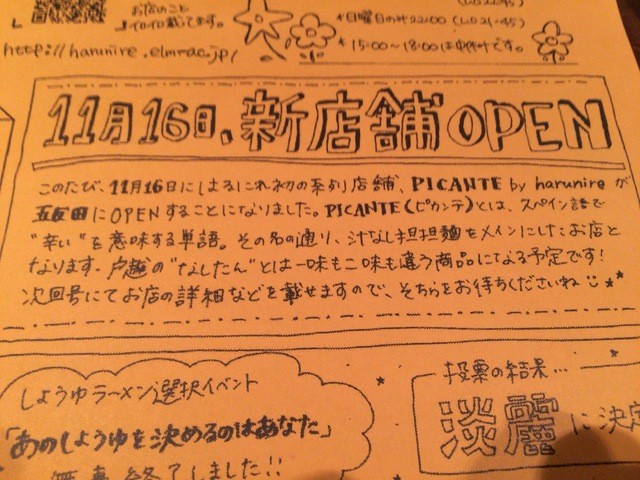 お店のこと
イロイロ載てます。
http://harunire.elmrac.jp/
*日曜日のみ22:00 (LO21:45)
* 15:00~18:00は中休みです。
11月16日、新店舗OPEN
このたび、11月16日にはるにれ初の系列店舗、PICANTE by harunireが
五反田にOPENすることになりました。PICANTE(ピカンテ)とは、スペイン語で
"辛い"を意味する単語。その名の通り、汁なし担担麺をメインにしたお店と
なります。戸越の"なしたん"とは一味も二味も違う商品になる予定です!
次回号にてお店の詳細などを載せますので、そちらをお待ちくださいね
しょうゆラーメン選択イベント
「あのしょうゆを決めるのはあなた」
無事終了しました!!
投票の結果…
淡麗に決定